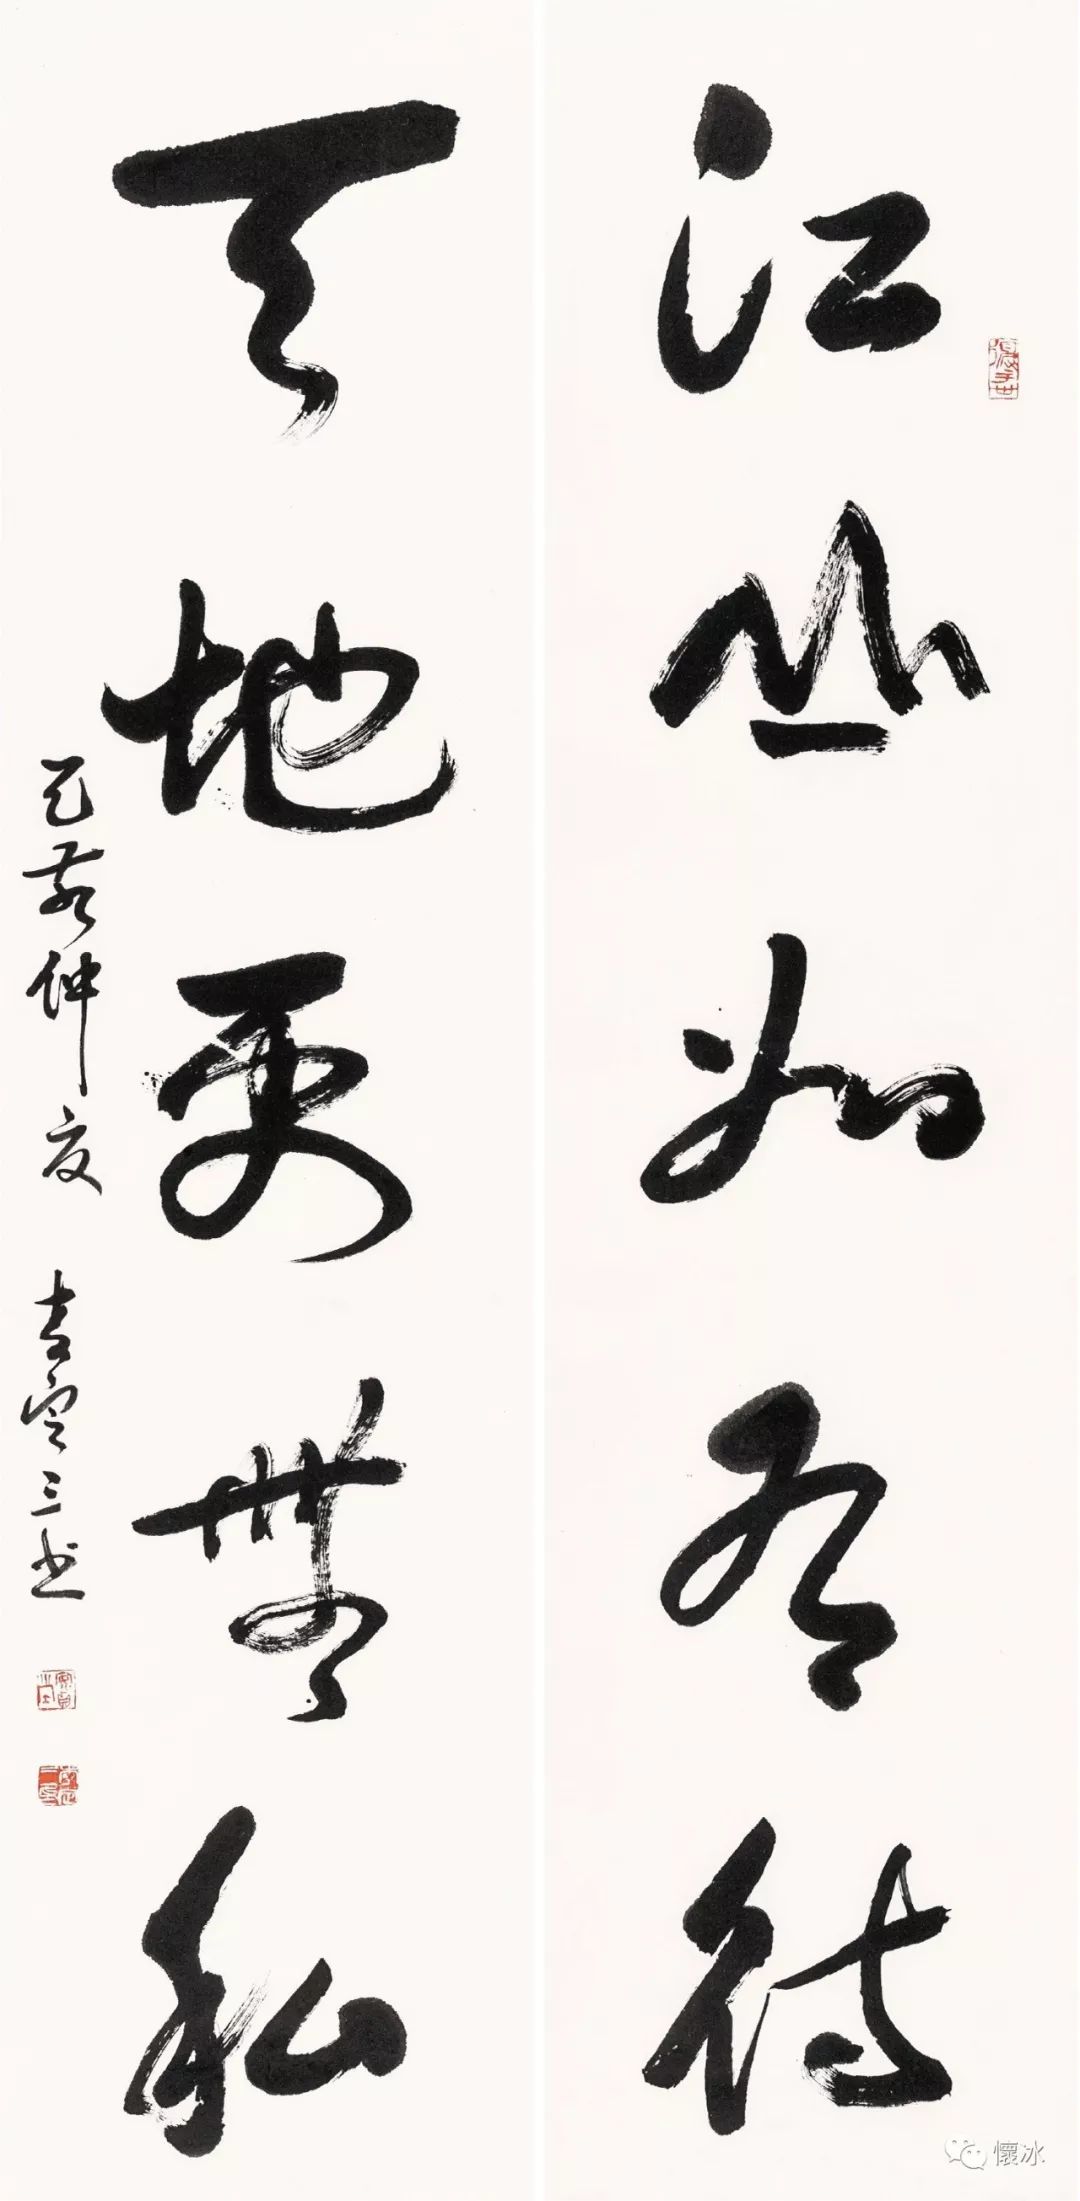 江山如有待
天地更無私
己亥仲夏
三书
懷冰